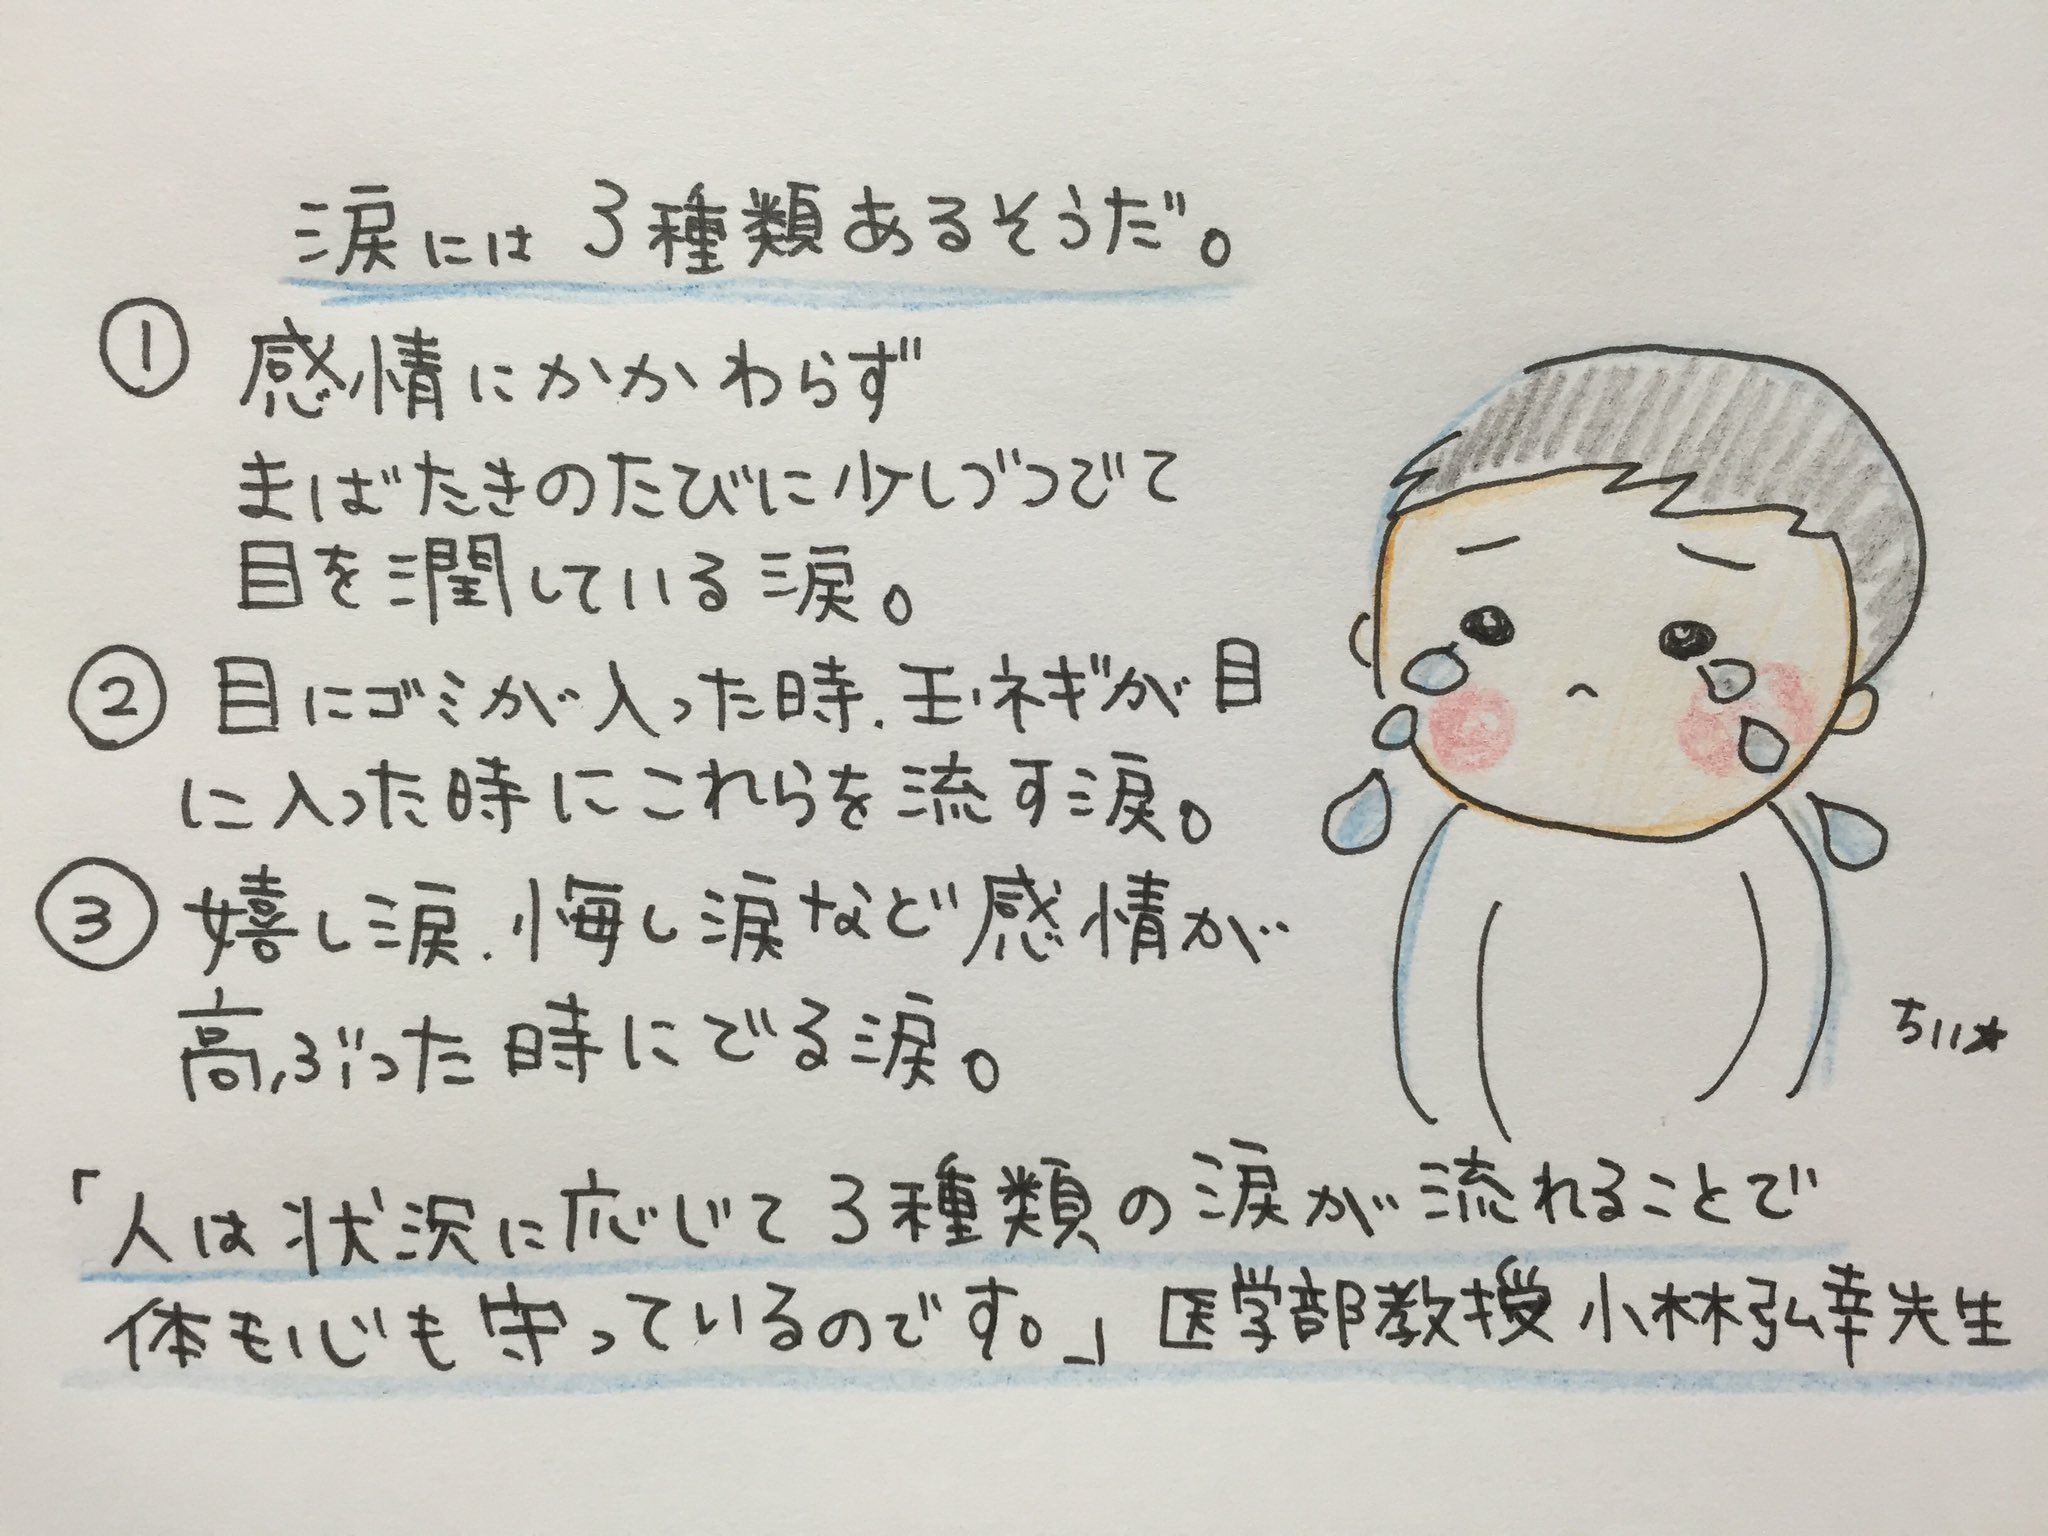 涙には3種類あるそうだ。
① 感情にかかわらず
まばたきのたびに少しづつでて
目を潤している涙。
② 目にゴミが入った時、玉ネギが目
に入った時にこれらを流す涙。
③ 嬉し涙、悔し涙など感情が
高ぶった時にでる涙。
ちい★
「人は状況に応じて3種類の涙が流れることで
体も心も守っているのです。」医学部教授 小林弘幸先生